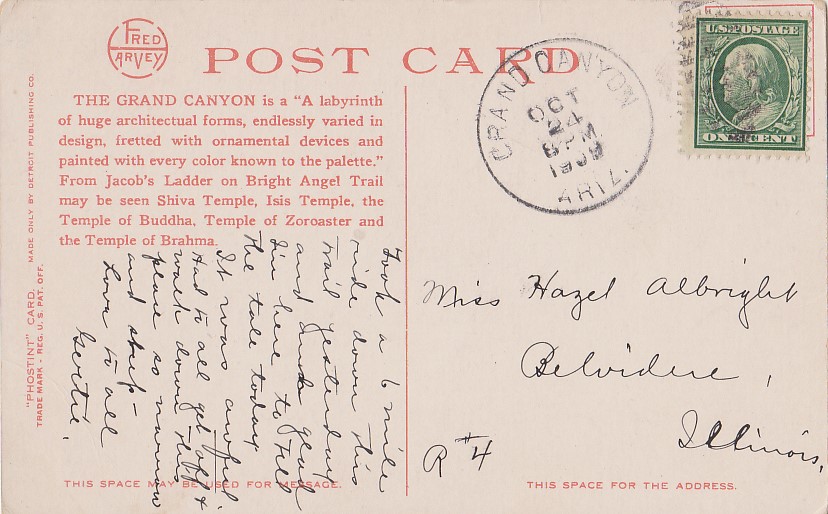 FRED
HARVEY
POST CARD
THE GRAND CANYON is a “A labyrinth
of huge architectural forms, endlessly varied in
design, fretted with ornamental devices and
painted with every color known to the palette.”
From Jacob's Ladder on Bright Angel Trail
may be seen Shiva Temple, Isis Temple, the
Temple of Buddha, Temple of Zoroaster and
the Temple of Brahma.
"PHOSTINT" CARD. MADE ONLY BY DETROIT PUBLISHING CO.
TRADE MARK - REG. U.S. PAT. OFF.
Took a 6 mile
ride down this
trail yesterday
and glad
I'm here to tell
the tale today
It was awful
Had to all get off &
walk down this
place so narrow
and steep -
Love to all
Gertie.
THIS SPACE MAY BE USED FOR MESSAGE.
GRAND CANYON
OCT
24
8 PM
1909
ARIZ.
U.S. POSTAGE
ONE CENT
Miss Hazel Albright
Belvidere,
Illinois,
R #4
THIS SPACE FOR THE ADDRESS.